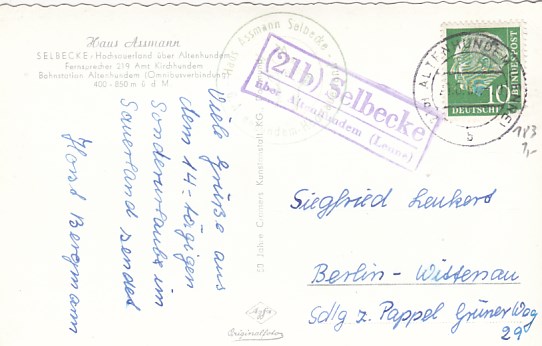 Haus Assmann
SELBECKE · Hochsauerland über Altenhundem
Fernsprecher 219 Amt Kirchhundem
Bahnstation Altenhundem (Omnibusverbindung)
400 - 850 m ü d M
Haus Assmann Selbecke
(21b) Selbecke
über Altenhundem (Lenne)
ALTENHUNDEM
b
10
DEUTSCHE
BUNDESPOST
183
1,-
Viele Grüße aus
dem 14-tägigen
Sonderurlaub im
Sauerland sendet
Horst Bergmann
50 Jahre Cramers Kunstanstalt KG
Agfa
Originalfoto
Siegfried Leukert
Berlin-Wittenau
Sdlg z. Pappel Grüner Weg
29